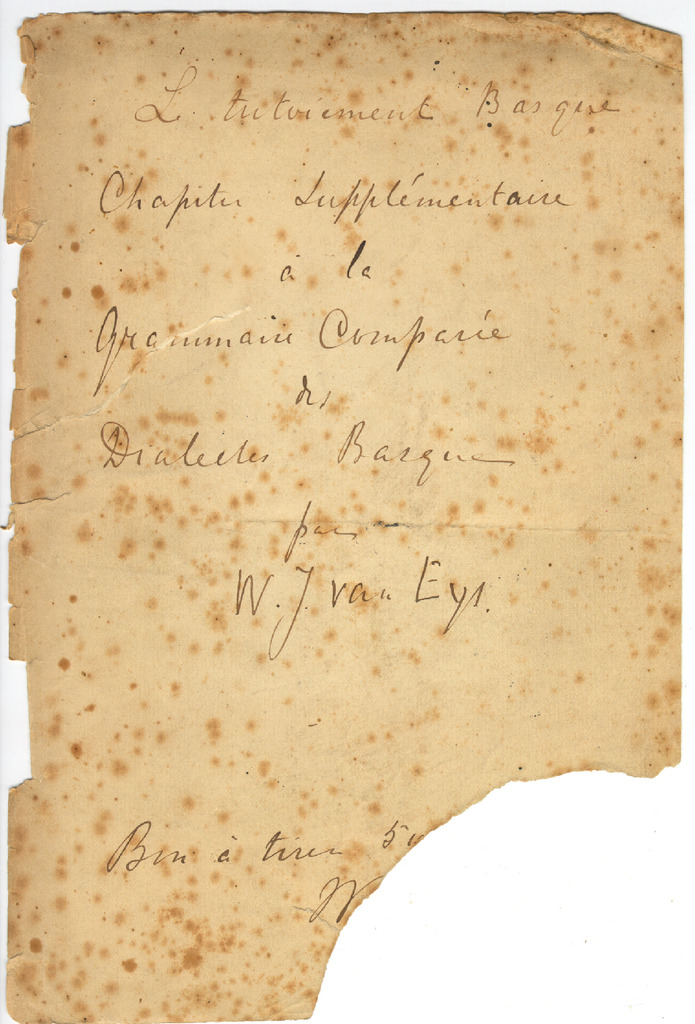 Le tutoiement Basque
Chapitre Supplémentaire
à la
Grammaire Comparée
des
Dialectes Basques
par
W. J. van Eys.
Bon à tirer 5
W